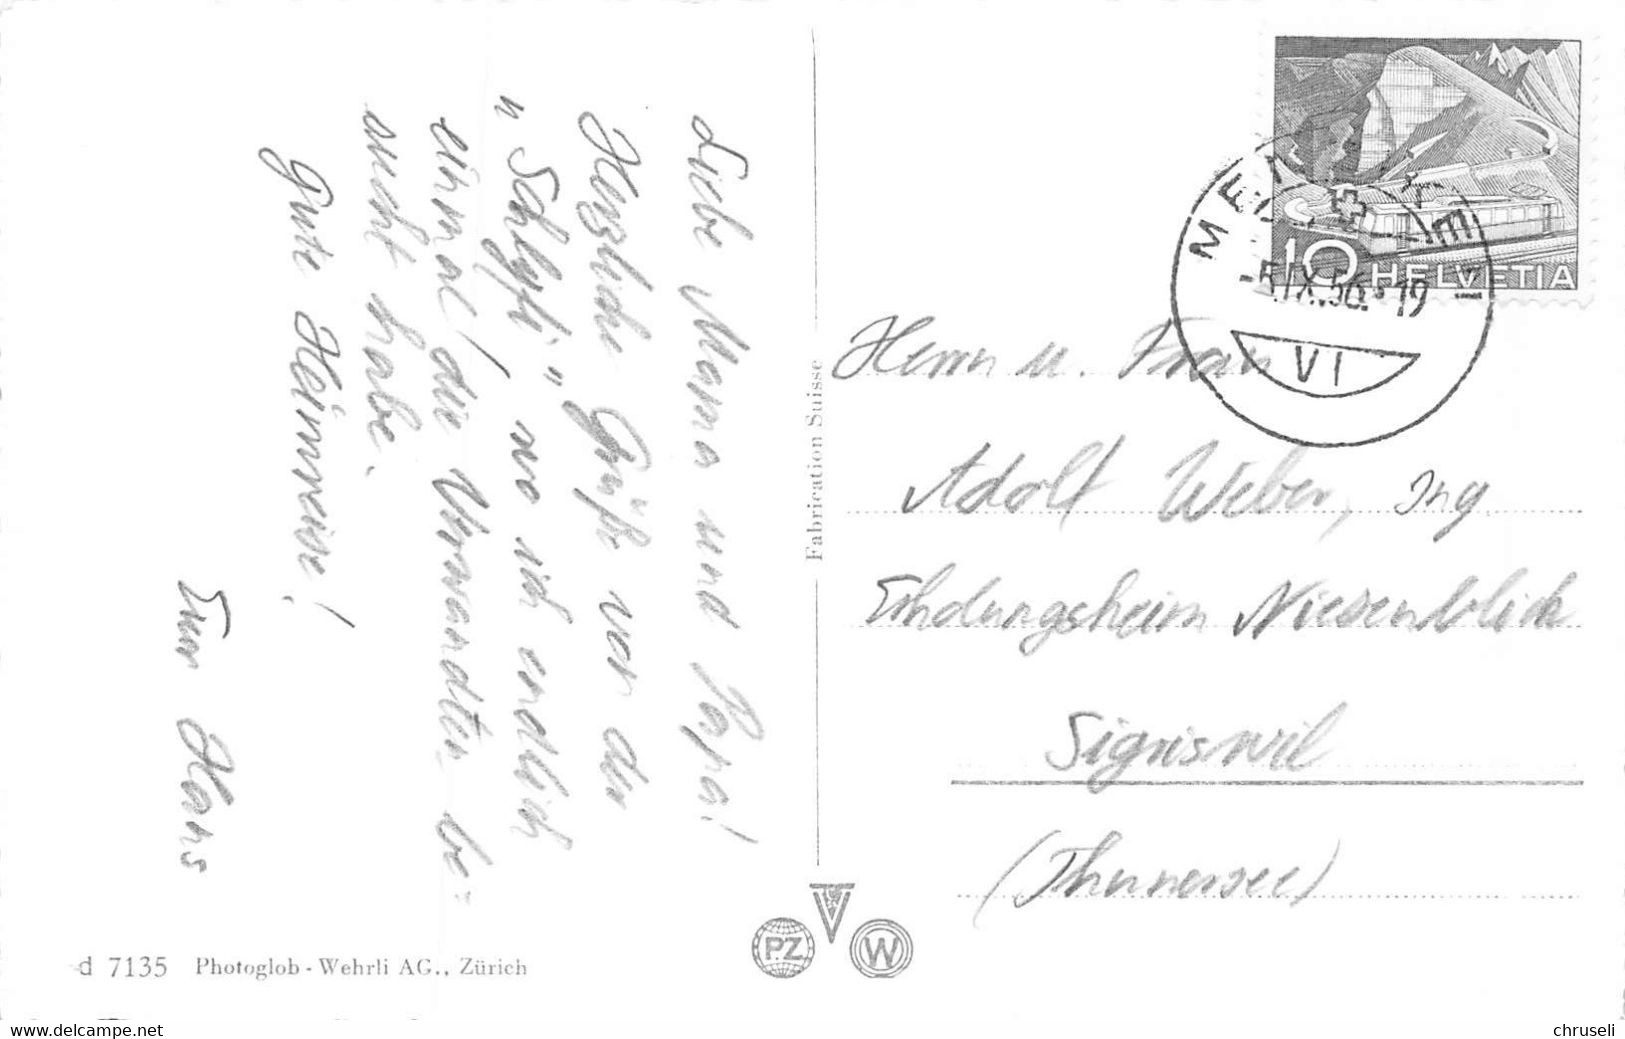 Liebe Mama und Papa!
Herzliche Grüße von der
"Schlyffi", wo ich endlich
einmal die Verwandten be-
sucht habe.
Gute Heimreise!
Euer Hans
d 7135 Photoglob - Wehrli AG., Zürich
Fabrication Suisse
PZ
W
10 HELVETIA
-5.IX.56.-19
VI
Herrn u. Frau
Adolf Weber, Ing
Erholungsheim Niesenblick
Sigriswil
(Thunersee)
www.delcampe.net
chruseli